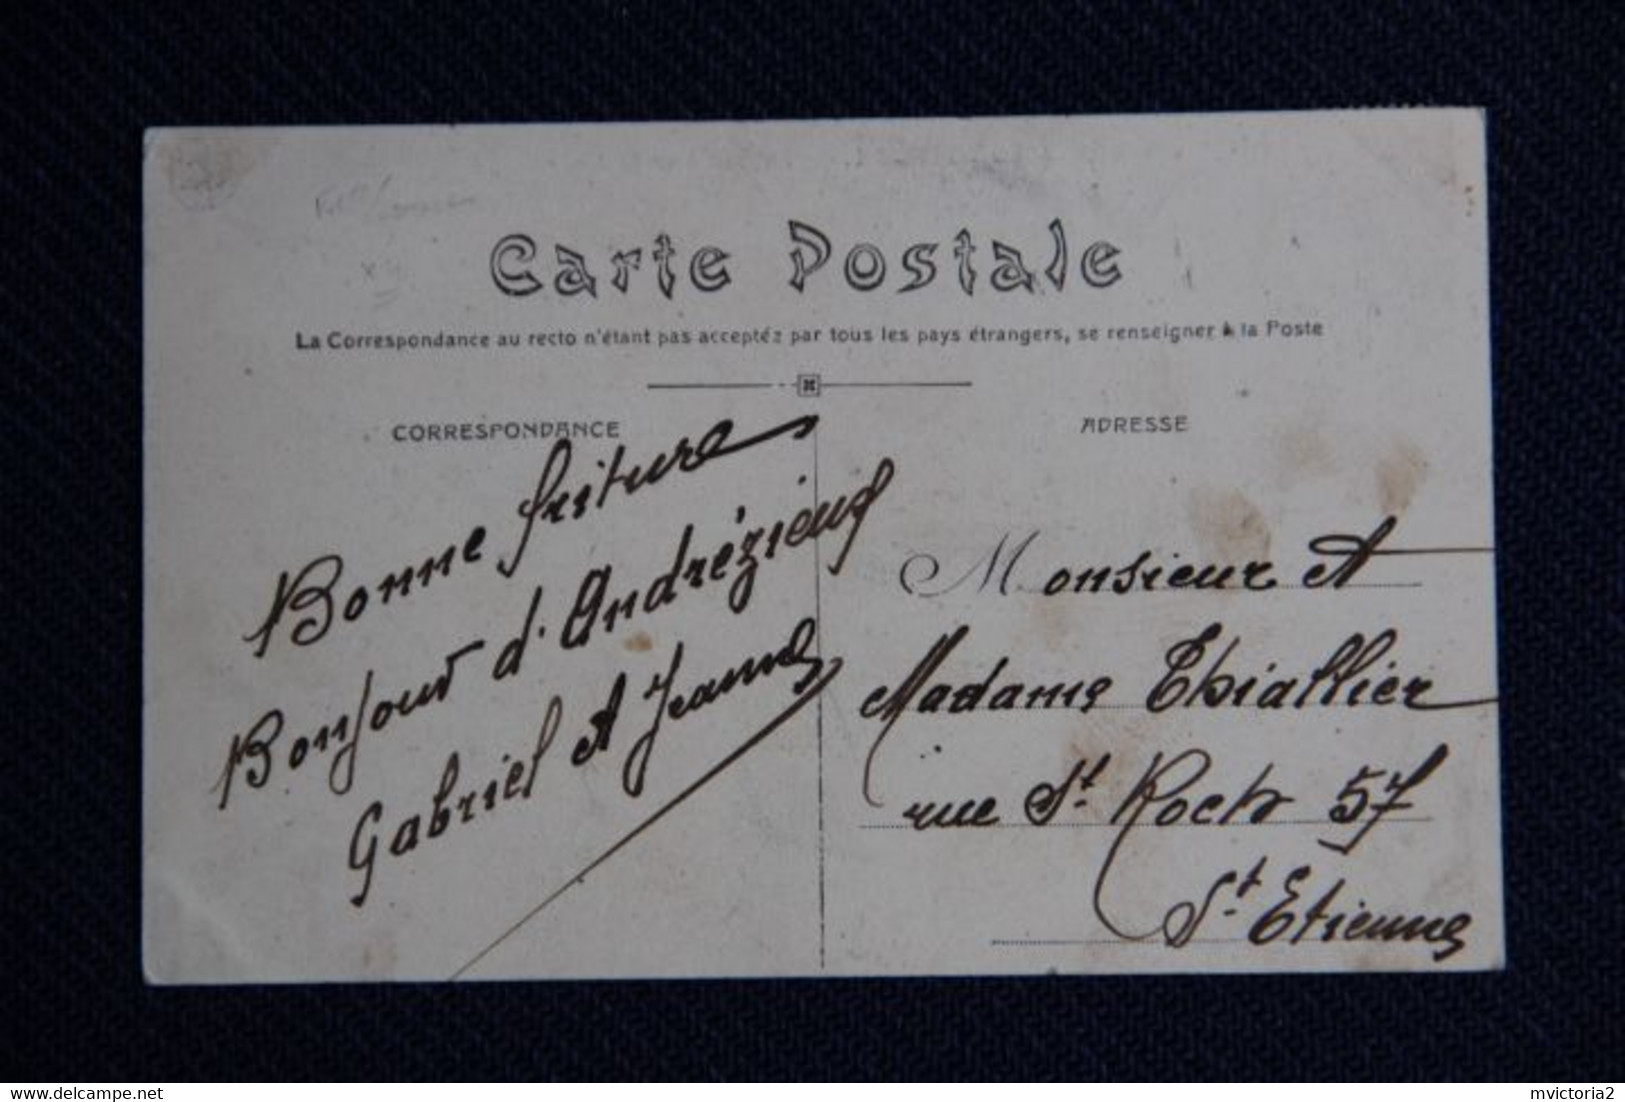 Carte Postale
La Correspondance au recto n'étant pas acceptée par tous les pays étrangers, se renseigner à la Poste
CORRESPONDANCE
Bonne friture
Bonjour d'Andrézieux
Gabriel et Jeanne
ADRESSE
Monsieur et
Madame Thiallier
rue St Roch 57
St. Etienne
mvictoria2